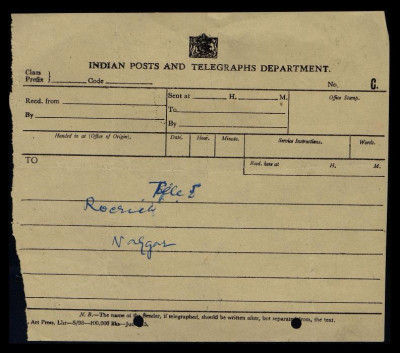 INDIAN POSTS AND TELEGRAPHS DEPARTMENT.
Class
Prefix } Code
No. C.
Recd. from
By
Sent at H. M.
To
By
Office Stamp.
Handed in at (Office of Origin). Date. Hour. Minute. Service Instructions. Words.
TO
Recd. here at H. M.
Roerich
Naggar
N. B.—The name of the Sender, if telegraphed, should be written after, but separate from, the text.
Art Press, Lhr—